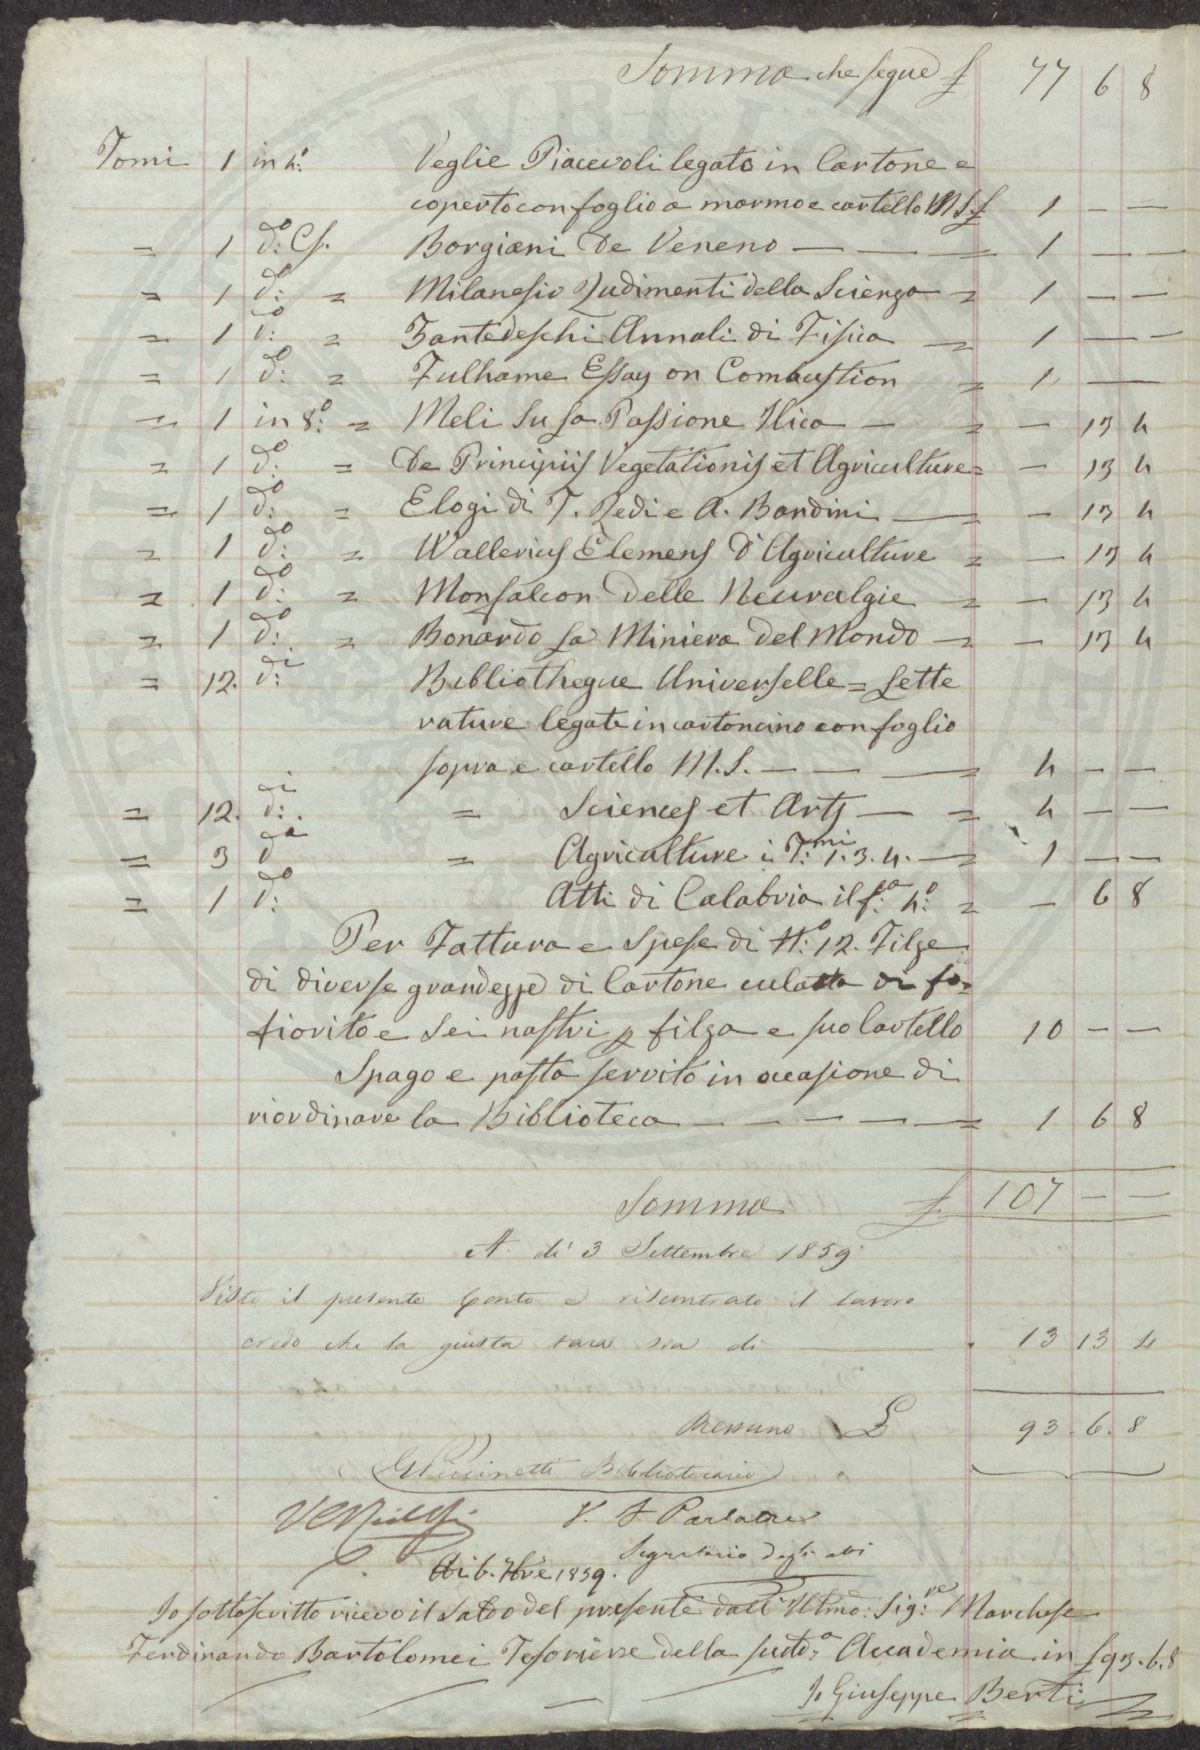 Somma che segue £ 77 6 8
Tomi 1 in 4.o Veglie Piacevoli legato in Cartone e
coperto con foglio a marmo e cartello M.S. £ 1 — —
= 1 d.o Cs. Borgiani De Veneno — — — = 1 — —
= 1 d.o = Milanesio Rudimenti della Scienza = 1 — —
= 1 d.o = Zantedeschi Annali di Fisica = 1 — —
= 1 d.o = Fulhame Essay on Combustion = 1 —
= 1 in 8.o = Meli Su la Passione Ilica — = — 13 4
= 1 d.o = De Principiis Vegetationis et Agriculture = — 13 4
= 1 d.o = Elogi di F. Redi e A. Bandini — = — 13 4
= 1 d.o = Wallerius Elemens D'Agriculture = — 13 4
= 1 d.o = Monfalcon Delle Neuralgie = — 13 4
= 1 d.o = Bonardo La Miniera Del Mondo = — 13 4
= 12. d.i Bibliotheque Universelle = Lette
rature legate in cartoncino con foglio
sopra e cartello M.S. — — — = 4 — —
= 12. d.i = Sciences et Arts — = 4 — —
= 3 d.i = Agriculture i T.mi 1. 3. 4. — = 1 — —
= 1 d.o Atti di Calabria il f.o 4.o = — 6 8
Per Fattura e Spese di N.o 12. Filze
di diverse grandezze di Cartone culatta di fo=
fiorito e Sei nastri p filza e suo Cartello 10 — —
Spago e pasta servito in occasione di
riordinare la Biblioteca — — — — — = 1 6 8
Somma £ 107 — —
A dì 3 Settembre 1859
Visto il presente Conto e riscontrato il lavoro
credo che la giusta tara sia di 13 13 4
Restano £ 93. 6. 8
Puccinetti Bibliotecario
V. F Parlatore
Segretario degli atti
Ai 6. 7bre 1859.
Io sottoscritto ricevo il Saldo del presente dall' Illmo: Sig:re Marchese
Ferdinando Bartolomei Tesoriere della sudd.a Accademia in £ 93. 6. 8
Io Giuseppe Berti